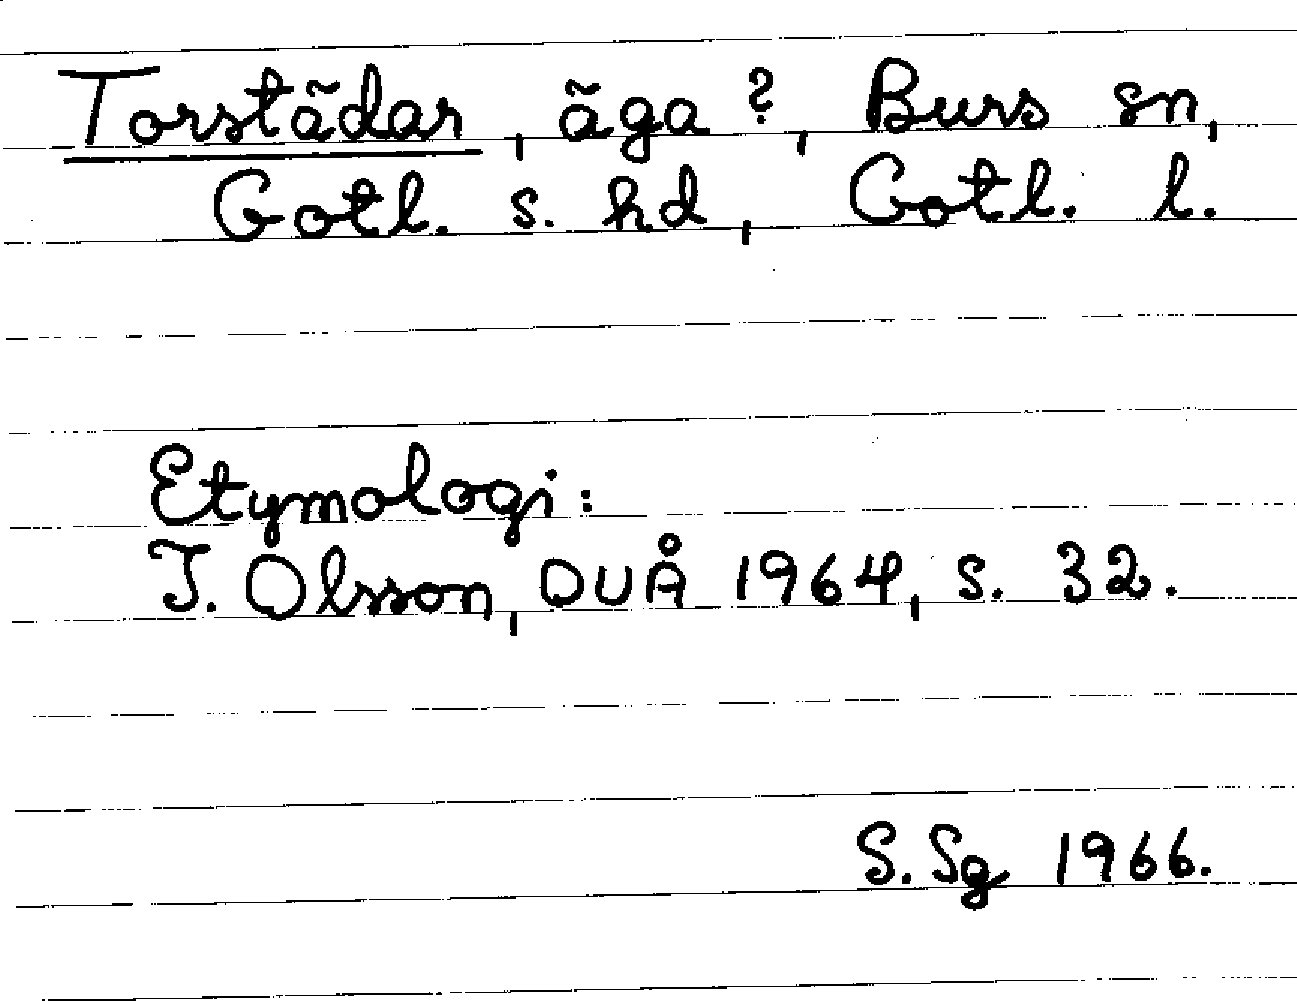 Torstädar, äga ?, Burs sn,
Gotl. s. hd, Gotl. l.
Etymologi:
I. Olsson, OUÅ 1964, s. 32.
S. Sg 1966.